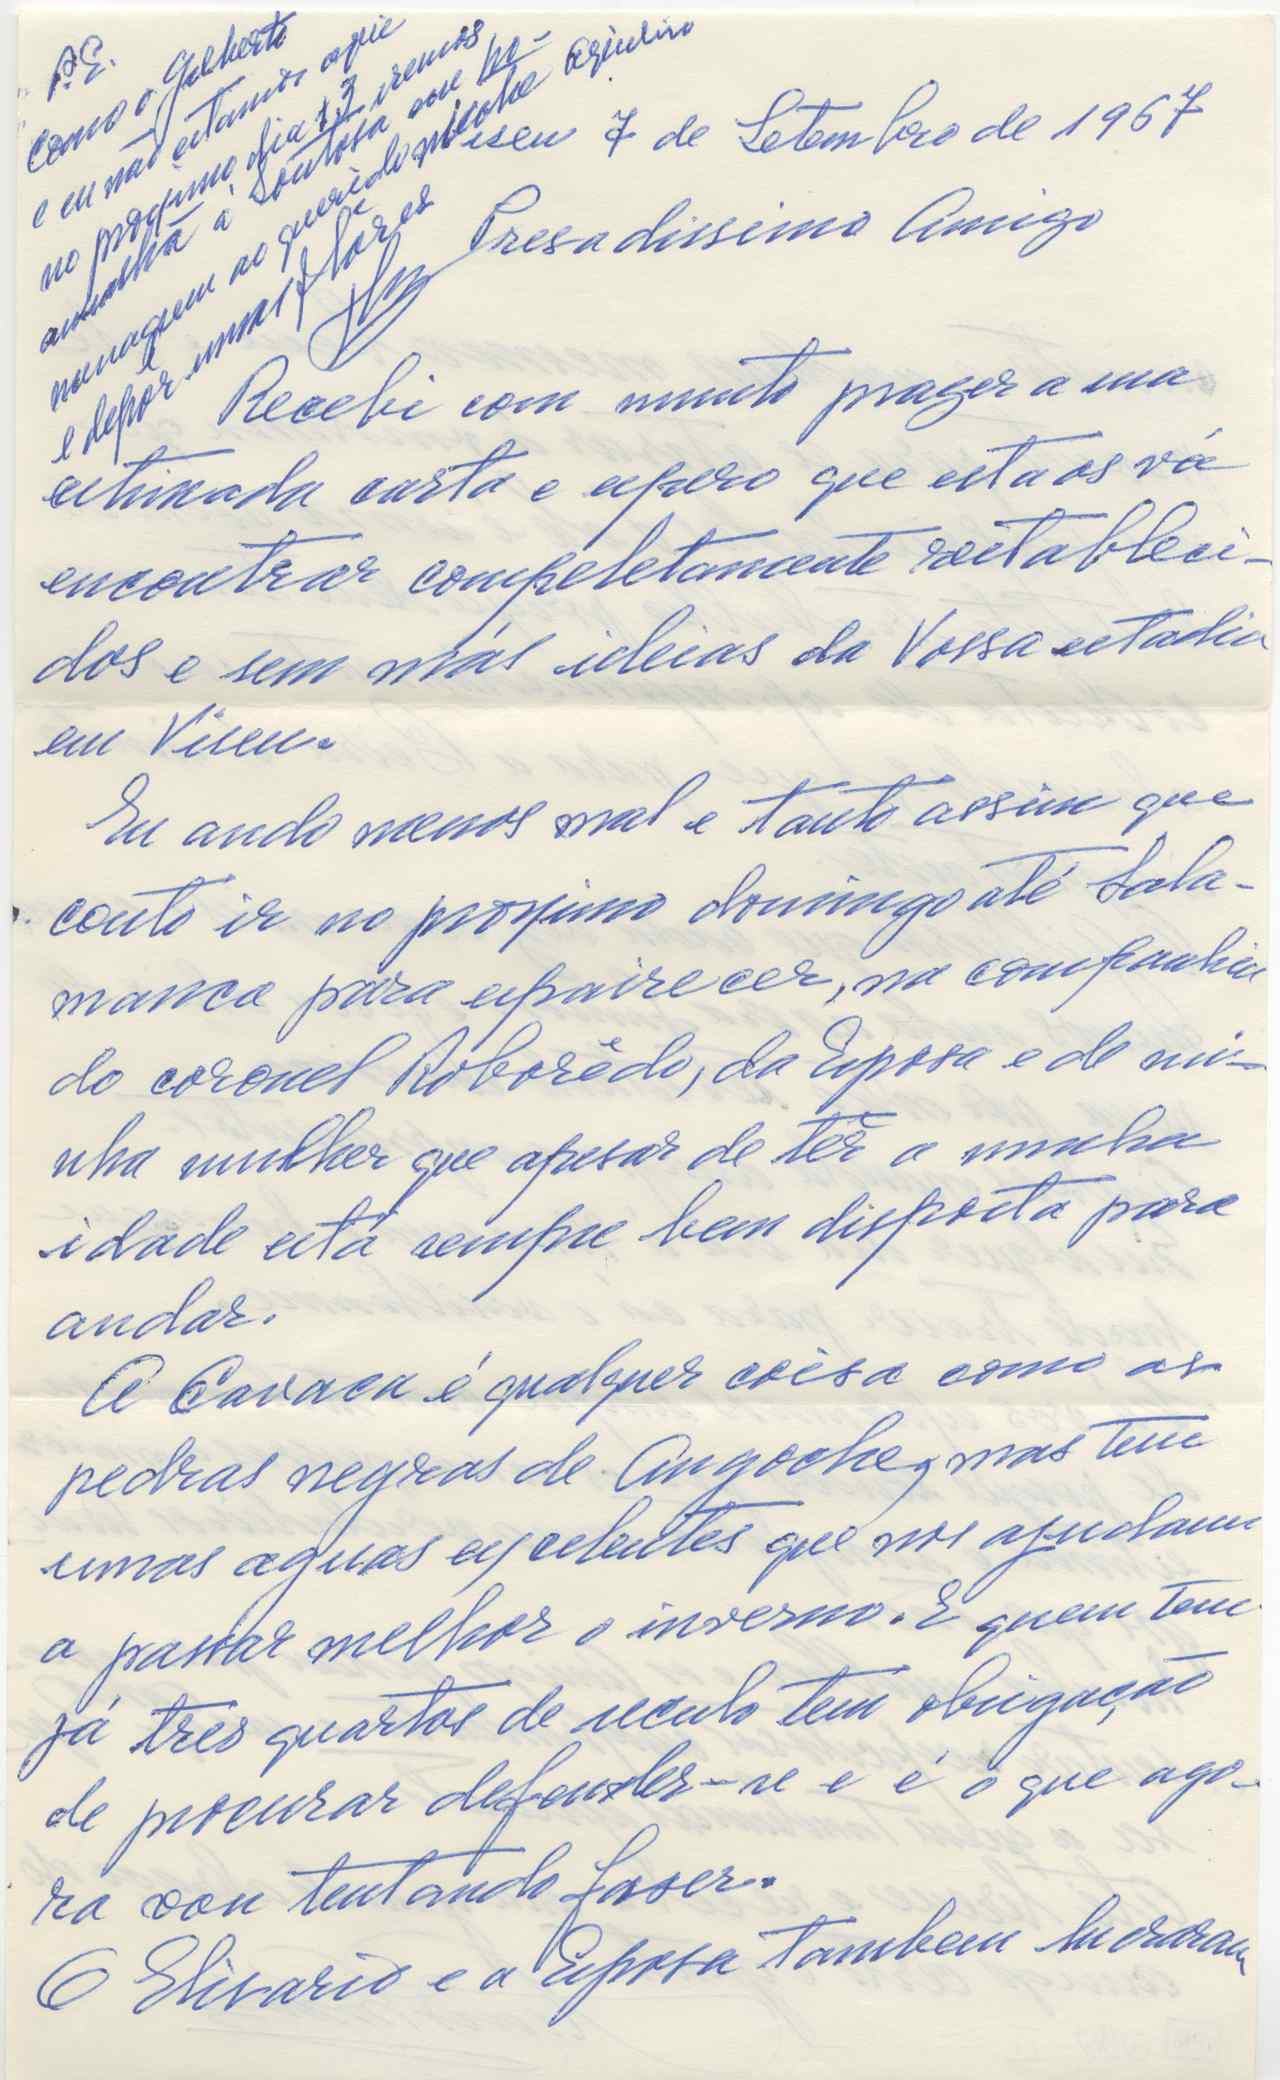 P.E.
Como o Gilberto
e eu não estamos aqui
no proximo dia 13 iremos
amanhã à Soutosa em ho-
menagem ao querido mestre Aquilino
e depôr umas flores
Viseu 7 de Setembro de 1967
Presadissimo Amigo
Recebi com muito prazer a sua
estimada carta e espero que esta os vá
encontrar compeletamente restableci-
dos e sem más ideias da Vossa estadia
em Viseu.
Eu ando menos mal e tanto assim que
conto ir no proximo domingo até Sala-
manca para espairecer, na companhia
do coronel Roborêdo, da Esposa e de mi-
nha mulher que apesar de têr a minha
idade está sempre bem disposta para
andar.
A Cavaca é qualquer coisa como as
pedras negras de Angoche, mas tem
umas aguas excelentes que nos ajudam
a passar melhor o inverno. E quem tem
já três quartos de seculo tem obrigação
de procurar defender-se e é o que ago-
ra vou tentando faser.
O Elisario e a Esposa tambem lucraram